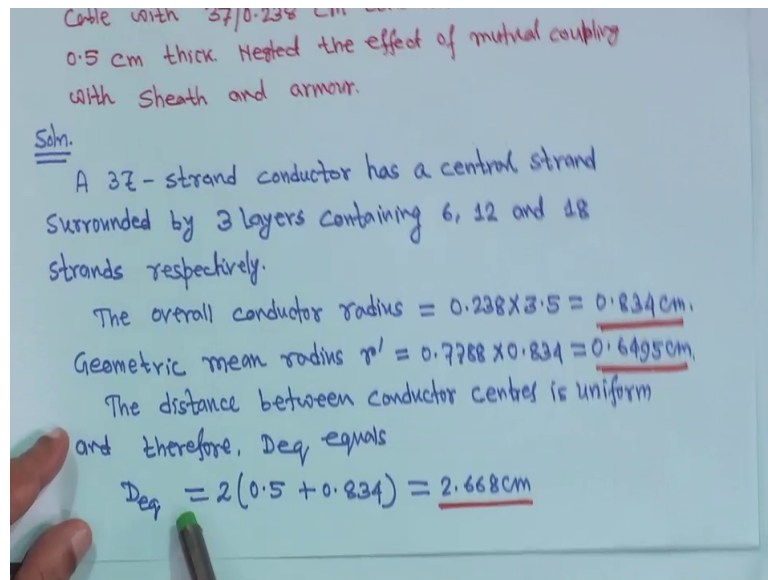 Cable with 37/0.238 cm
0.5 cm thick. Neglect the effect of mutual coupling
with sheath and armour.
Soln.
A 37-strand conductor has a central strand
surrounded by 3 layers containing 6, 12 and 18
strands respectively.
The overall conductor radius = 0.238×3.5 = 0.834cm.
Geometric mean radius r' = 0.7788×0.834 = 0.6495cm.
The distance between conductor centres is uniform
and therefore, Deq equals
Deq = 2(0.5 + 0.834) = 2.668cm